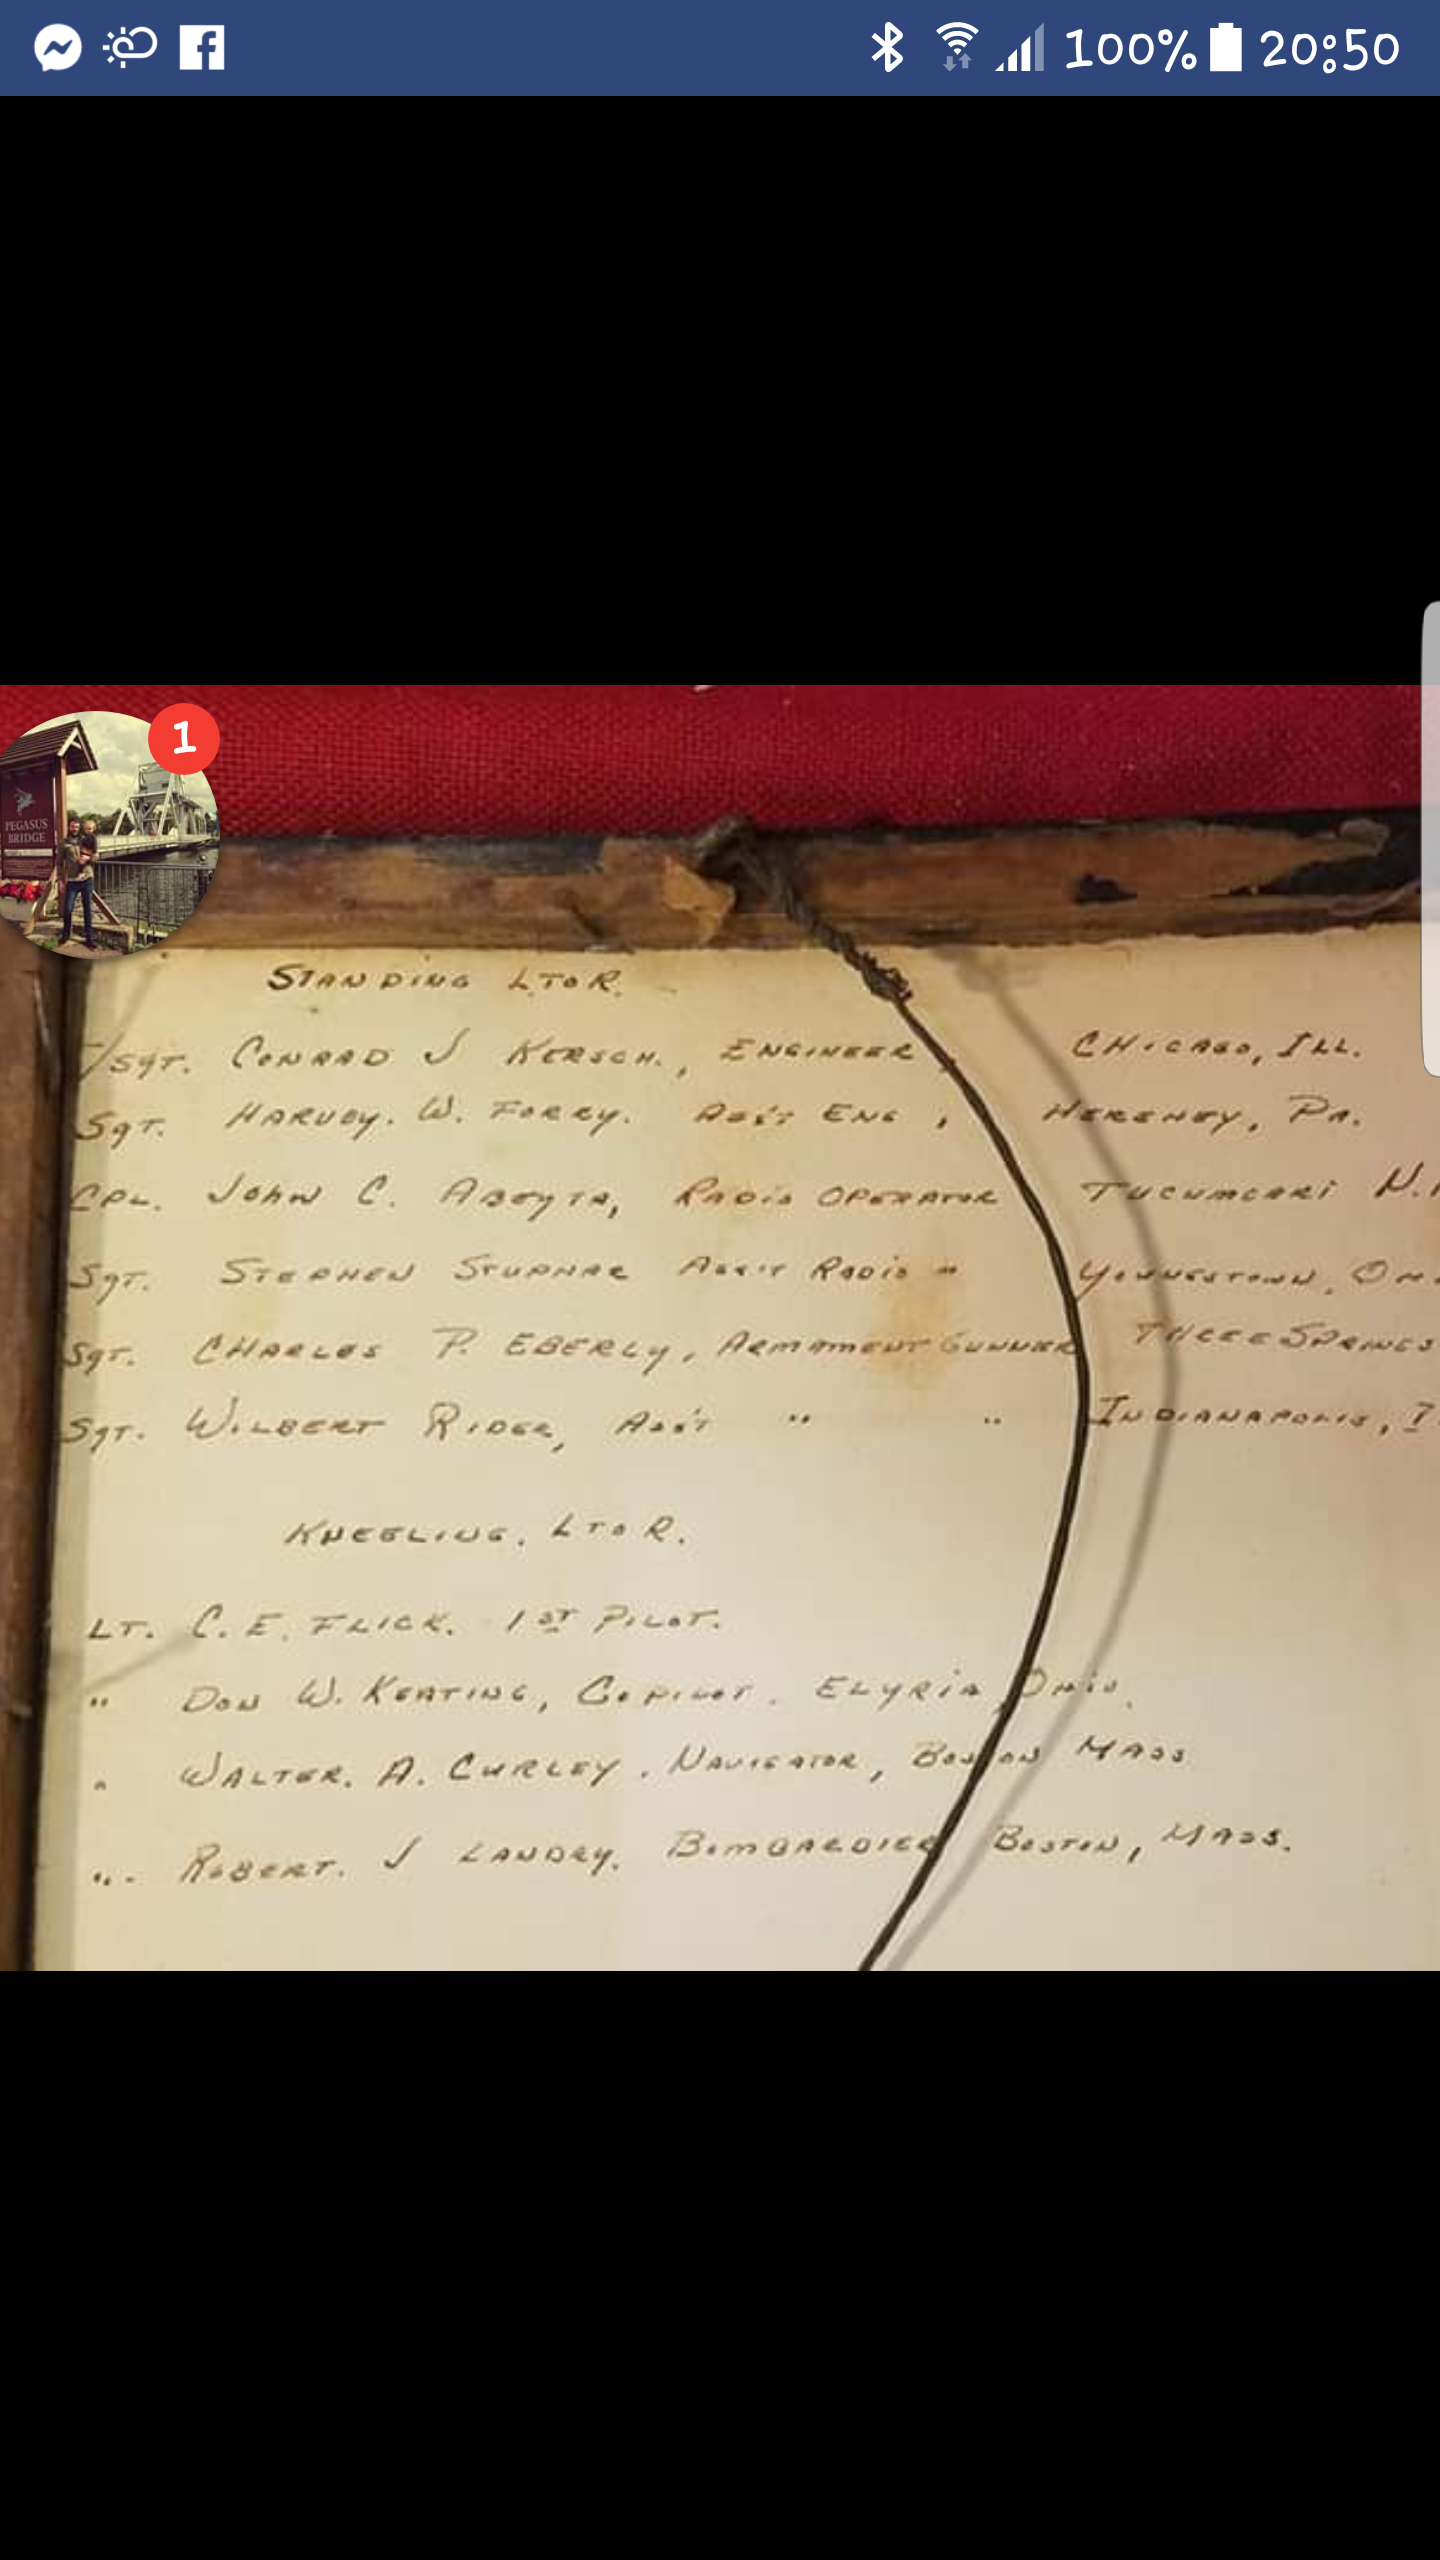 100% 20:50
1
PEGASUS
BRIDGE
STANDING L TO R.
T/SGT. CONRAD J KERSCH., ENGINEER, CHICAGO, ILL.
SGT. HARVEY. W. FORRY. ASS'T ENG, HERSHEY, PA.
CPL. JOHN C. ABEYTA, RADIO OPERATOR TUCUMCARI N.
SGT. STEPHEN STUPNAR ASS'T RADIO " YOUNGSTOWN, OH
SGT. CHARLES P. EBERLY, ARMAMENT GUNNER THREE SPRINGS
SGT. WILBERT RIDER, ASS'T " " INDIANAPOLIS, I
KNEELING, L TO R.
LT. C. E. FLICK. 1ST PILOT.
" DON W. KEATING, COPILOT. ELYRIA, OHIO.
" WALTER. A. CURLEY. NAVIGATOR, BOSTON MASS
" ROBERT. J LANDRY. BOMBARDIER BOSTON, MASS.